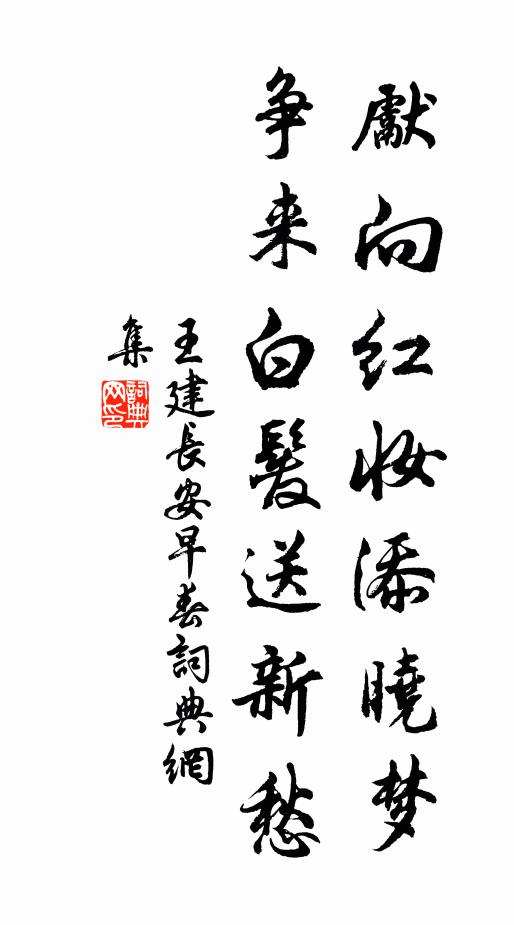 獻向红妆添曉梦
争来白髮送新愁
王建長安早春詞典網
集
詞典
网印